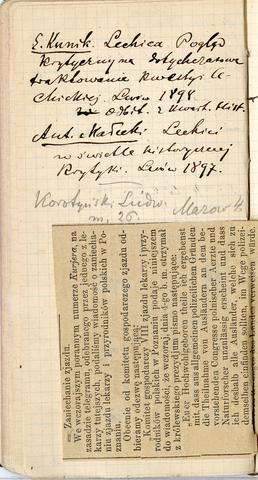 E. Kunik. Lechica Pogląd
krytyczny na dotychczasowe
traktowanie kwestyi le-
chickiej. Lwów 1898
Odbit. z Kwart. Hist.
Ant. Małecki Lechici
w świetle historycznej
krytyki. Lwów 1897.
Korotyński Ludw.
m. 26. Mazow. 4
= Zaniechanie zjazdu.
We wczorajszym porannym numerze Kurjera, na
zasadzie telegramu, odebranego przez jednego z le-
karzy tutejszych, podaliśmy wiadomość o zaniecha-
niu zjazdu lekarzy i przyrodników polskich w Po-
znaniu.
Obecnie od komitetu gospodarczego zjazdu od-
bieramy odezwę następującą:
„Komitet gospodarczy VIII zjazdu lekarzy i przy-
rodników polskich w Poznaniu uprasza uprzejmie
do wiadomości, że wczoraj, dnia 4-go b. m. otrzymał
z królewskiego prezydjum pismo następujące:
„Euer Hochwohlgeboren theile ich ergebenst
mit, dass aus allgemeinen politischen Gründen
die Theilnahme von Ausländern an dem be-
vorstehenden Congresse polnischer Aerzte und
Naturforscher unzulässig erscheint und dass
ich deshalb alle Ausländer, welche sich zu
demselben einfinden sollten, im Wege polizei-